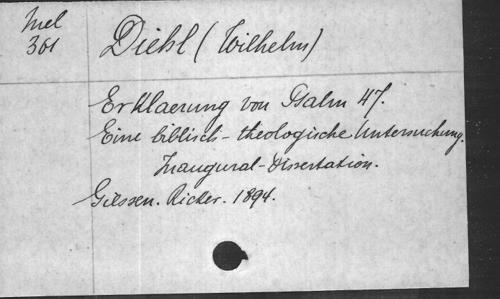 Mel
361
Diehl (Wilhelm)
Erklaerung von Psalm 47.
Eine biblisch-theologische Untersuchung.
Inaugural-Dissertation.
Giessen. Ricker. 1894.